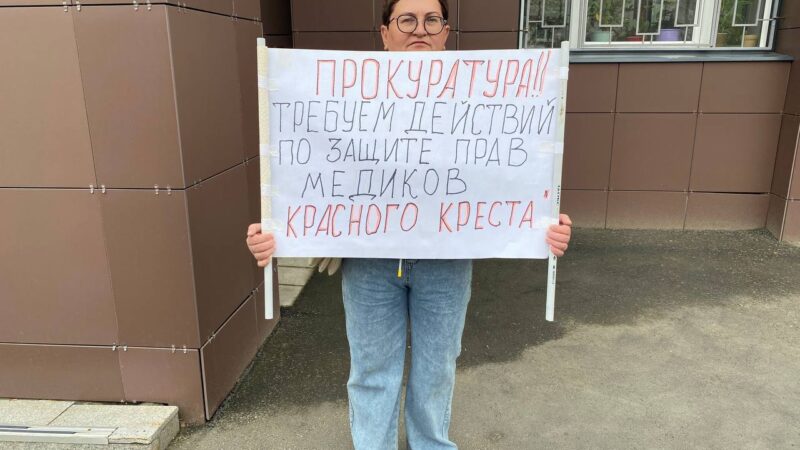 ПРОКУРАТУРА!!
ТРЕБУЕМ ДЕЙСТВИЙ
ПО ЗАЩИТЕ ПРАВ
МЕДИКОВ
КРАСНОГО КРЕСТА"